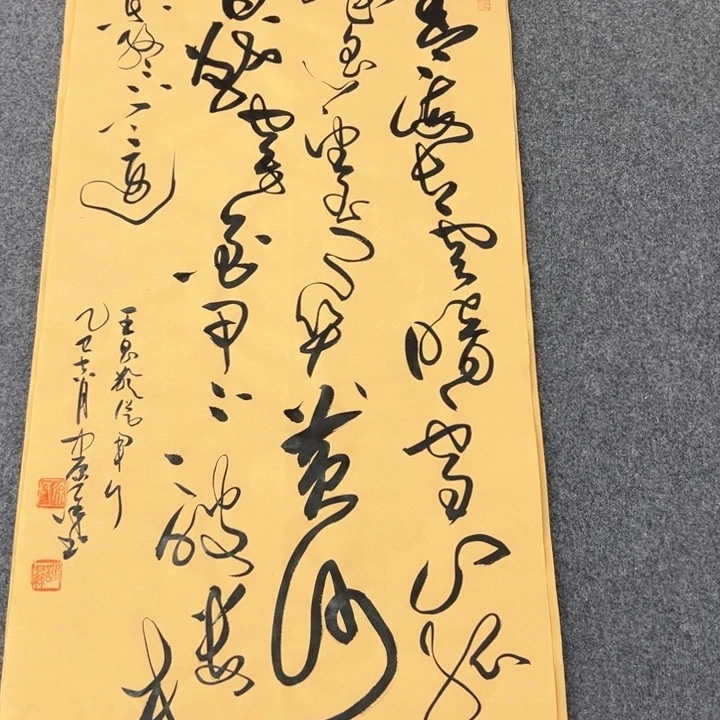 青海长云暗雪山孤
城遥望玉门关黄沙
百战穿金甲不破楼
终不还
王昌龄从军行
乙巳六月中原书